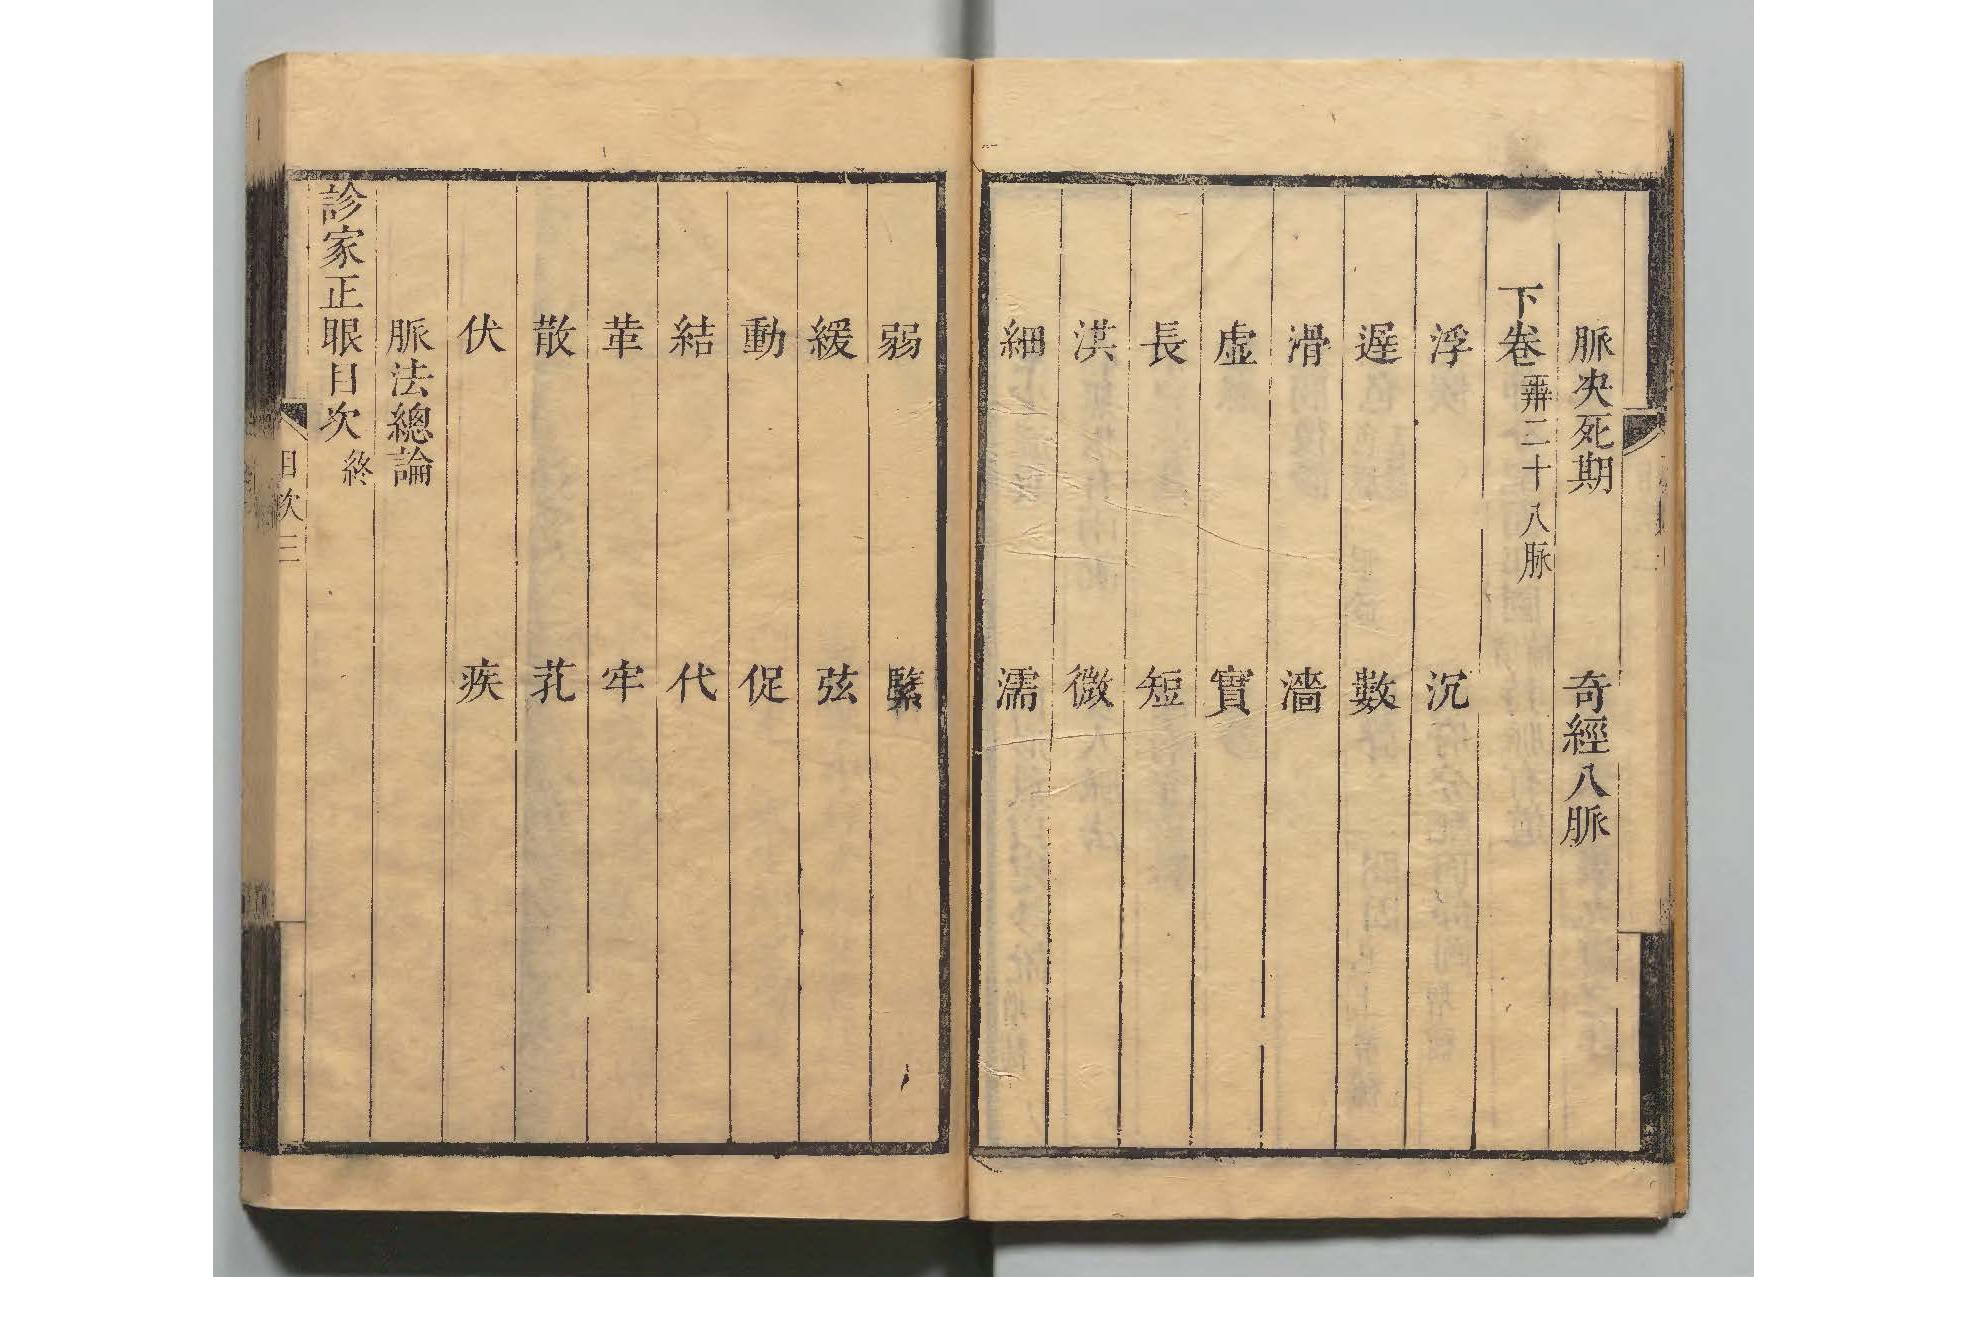 脈決死期　奇經八脈
下卷　辨二十八脈
浮　沉
遲　數
滑　濇
虛　實
長　短
洪　微
細　濡
弱　緊
緩　弦
動　促
結　代
革　牢
散　芤
伏　疾
脈法總論
診家正眼目次　終
目次　三